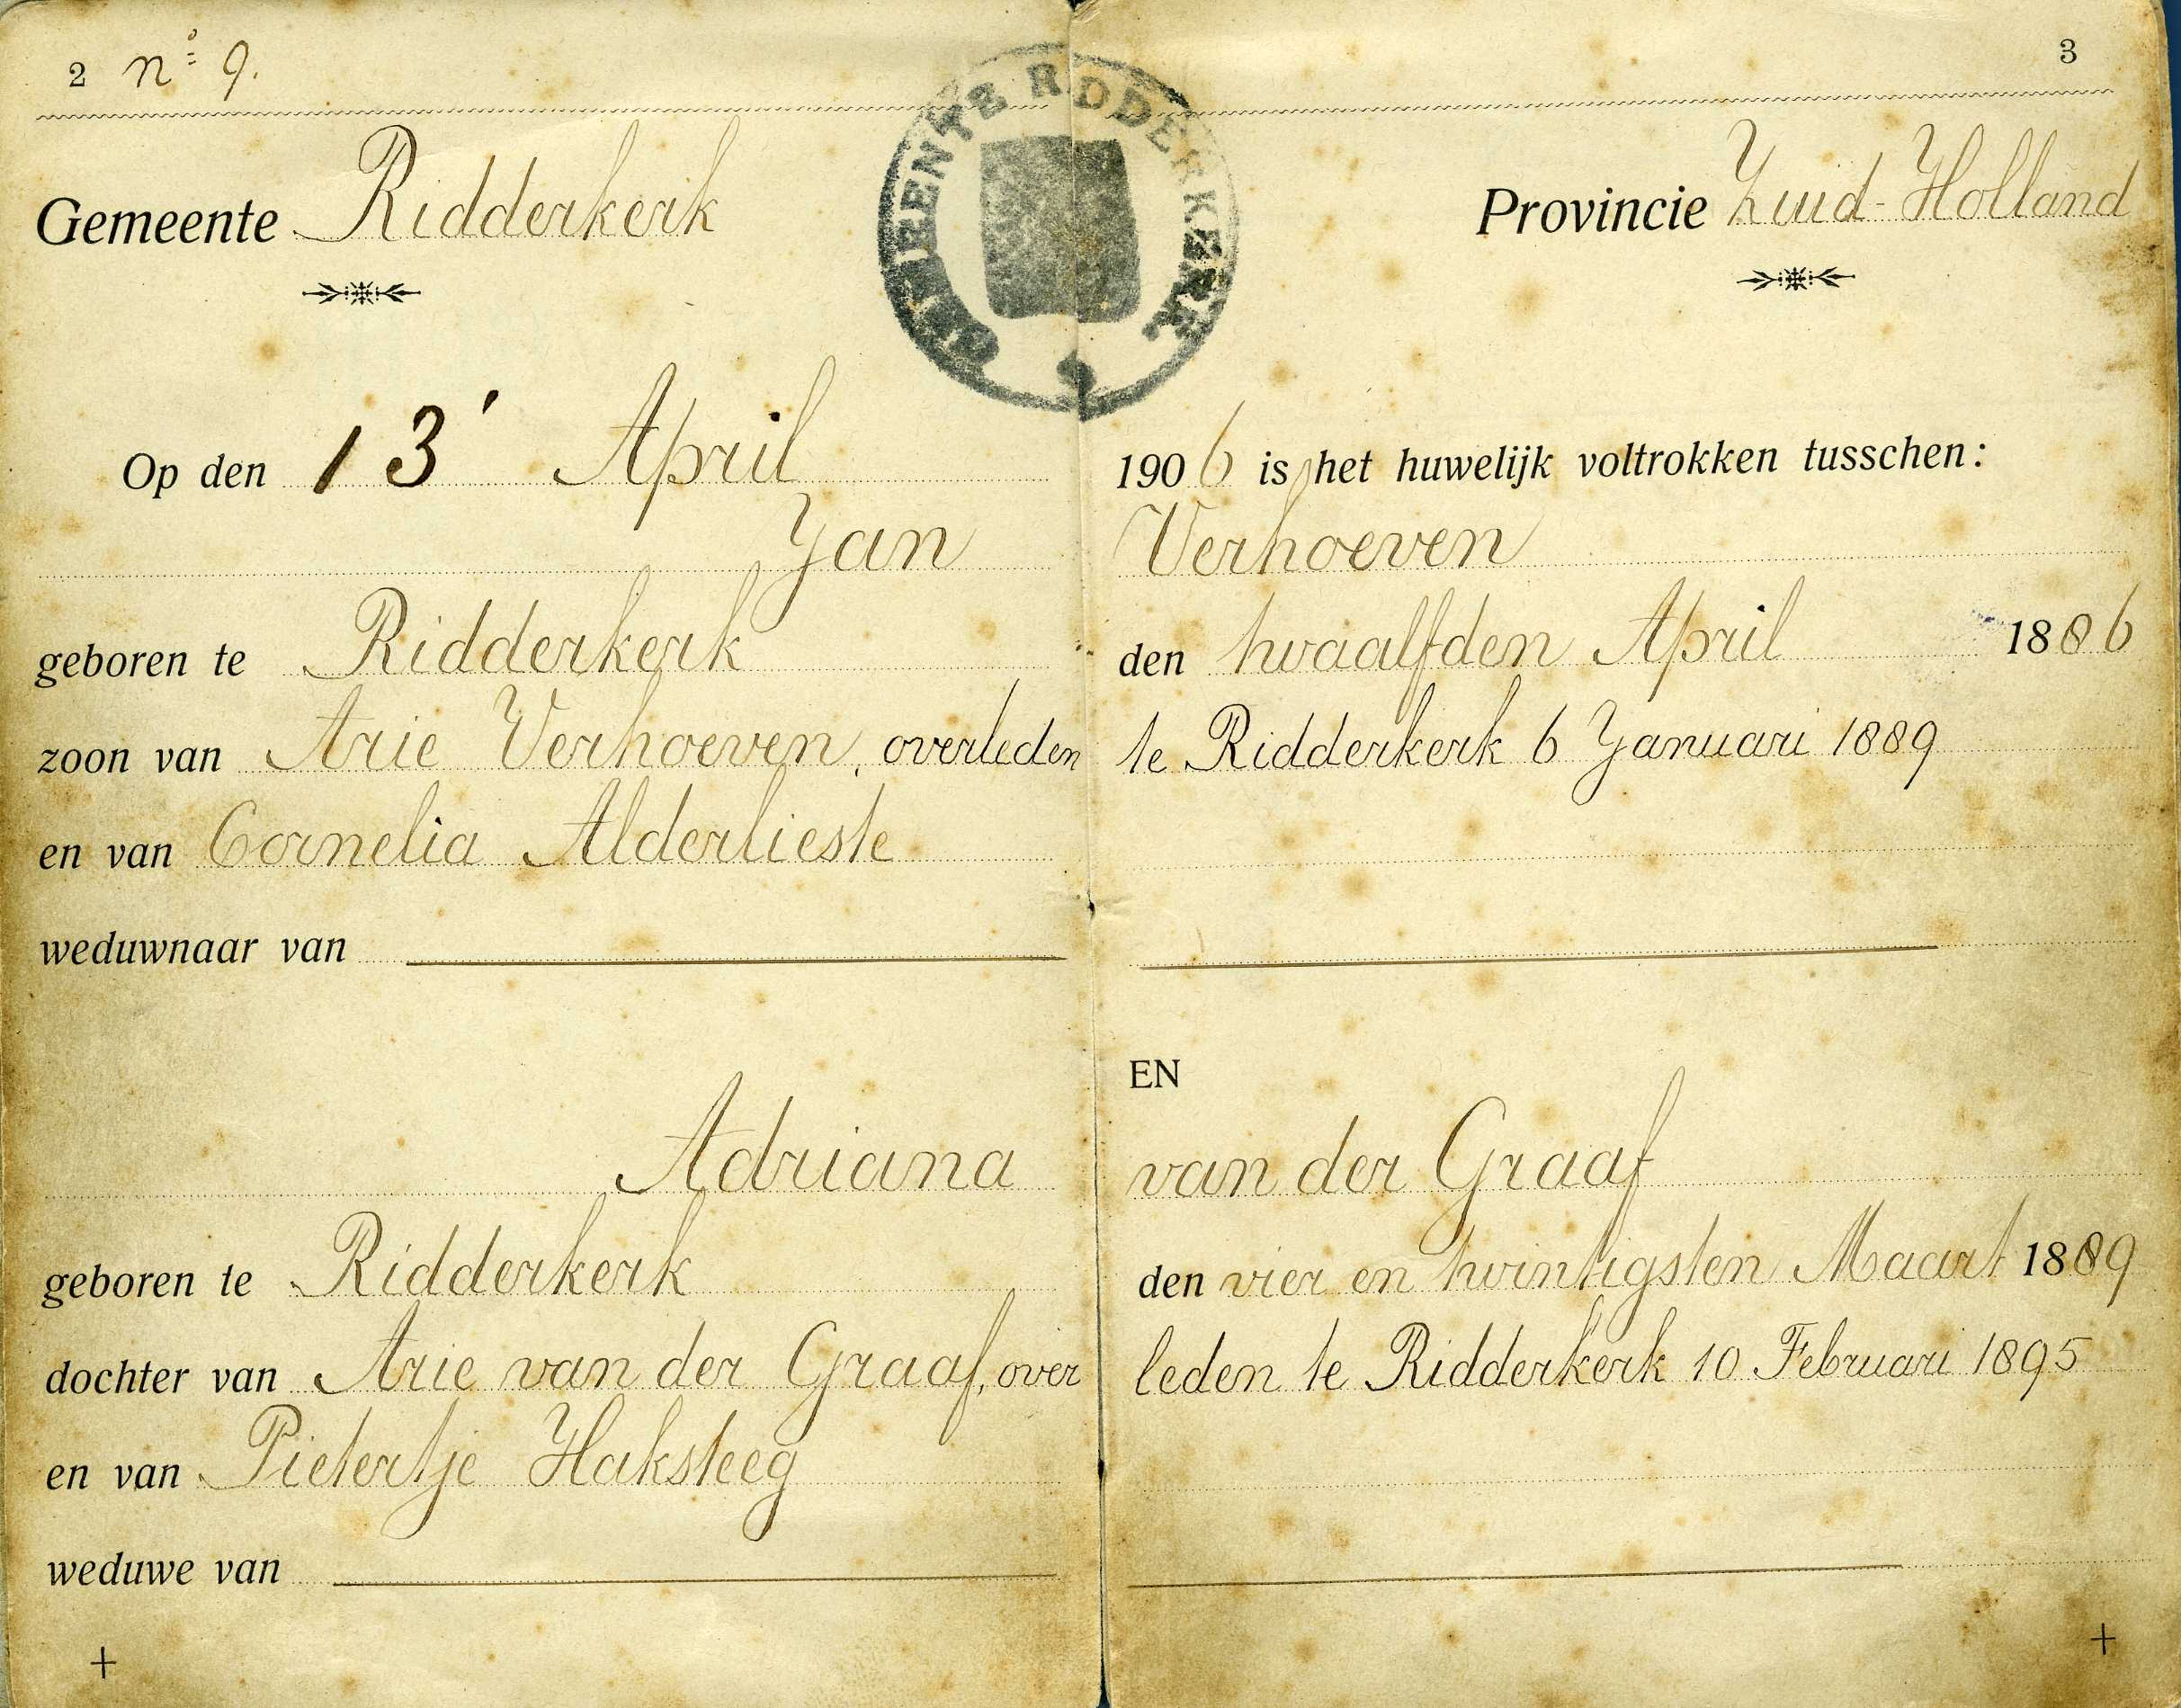 2 nº 9.
3
GEMEENTE RIDDERKERK
Gemeente Ridderkerk
Provincie Zuid-Holland
Op den 13' April 1906 is het huwelijk voltrokken tusschen:
Jan Verhoeven
geboren te Ridderkerk den twaalfden April 1886
zoon van Arie Verhoeven, overleden te Ridderkerk 6 Januari 1889
en van Cornelia Alderlieste
weduwnaar van
EN
Adriana van der Graaf
geboren te Ridderkerk den vier en twintigsten Maart 1889
dochter van Arie van der Graaf, over leden te Ridderkerk 10 Februari 1895
en van Pietertje Haksteeg
weduwe van